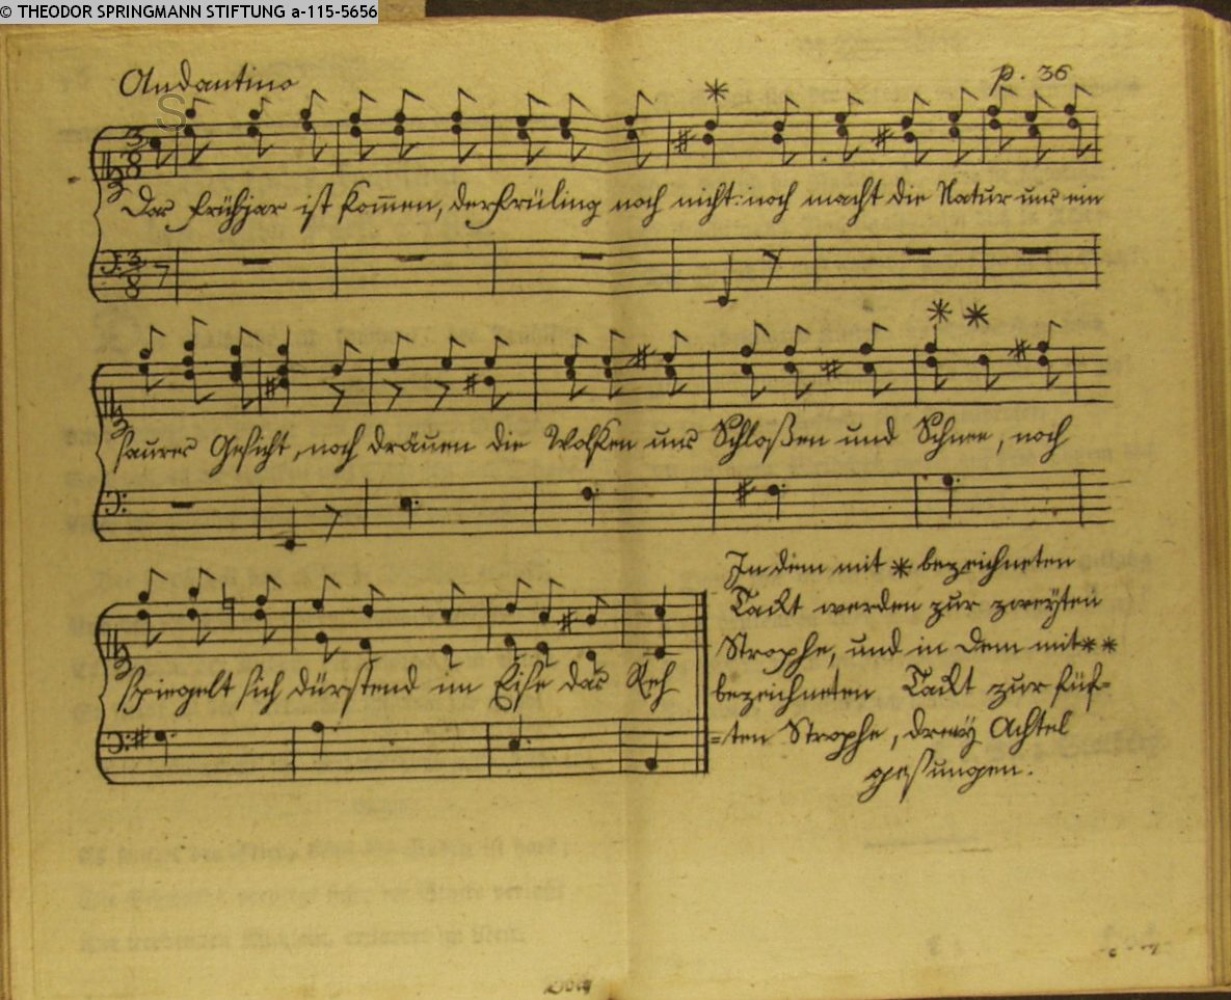 © THEODOR SPRINGMANN STIFTUNG a-115-5656
Andantino
p. 36
Das Frühjar ist kom̄en, der Früling noch nicht: noch macht die Natur uns ein
saures Gesicht, noch dräuen die Wolken uns Schloßen und Schnee, noch
spiegelt sich dürstend im Eise das Reh
In dem mit * bezeichneten
Tackt werden zur zweyten
Strophe, und in dem mit **
bezeichneten Tackt zur fünf-
=ten Strophe, drey Achtel
gesungen.